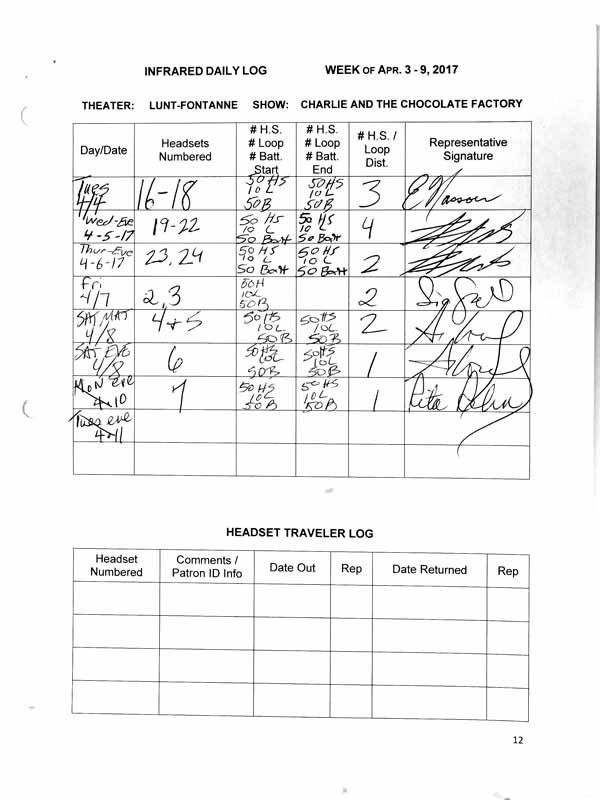 INFRARED DAILY LOG WEEK OF APR. 3 - 9, 2017
THEATER: LUNT-FONTANNE SHOW: CHARLIE AND THE CHOCOLATE FACTORY
Day/Date Headsets Numbered # H.S. # Loop # Batt. Start # H.S. # Loop # Batt. End # H.S. / Loop Dist. Representative Signature
Tues 4/4 16-18 50HS 10L 50B 50HS 10L 50B 3
Wed-Eve 4-5-17 19-22 50 HS 10 L 50 Batt 50 HS 10 L 50 Batt 4
Thur-Eve 4-6-17 23,24 50 HS 10 L 50 Batt 50 HS 10 L 50 Batt 2
Fri 4/7 2,3 50H 10L 50B 2
SAT MAT 4/8 4+5 50HS 10L 50B 50HS 10L 50B 2
SAT EVE 4/8 6 50HS 10L 50B 50HS 10L 50B 1
MON eve 4-10 7 50HS 10L 50B 50HS 10L 50B 1 Rita
Tues eve 4-11
HEADSET TRAVELER LOG
Headset Numbered Comments / Patron ID Info Date Out Rep Date Returned Rep
12